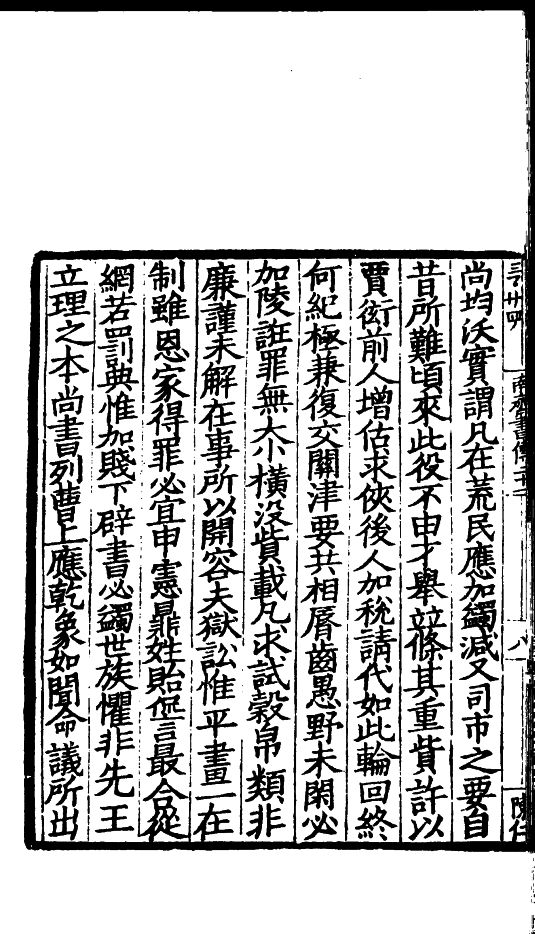 尚均沃實謂凡在荒民應加蠲減又司市之要自
昔所難頃來此役不由才舉竝條其重貲許以
賈衒前人增估求俠後人加稅請代如此輪回終
何紀極兼復交關津要共相脣齒愚野未閑必
加陵誑罪無大小橫没貲載凡求試穀帛類非
廉謹未解在事所以開容夫獄訟惟平畫一在
制雖恩家得罪必宜申憲鼎姓貽𠎝最合從
網若罰典惟加賤下辟書必蠲世族懼非先王
立理之本尚書列曹上應乾象如聞命議所出